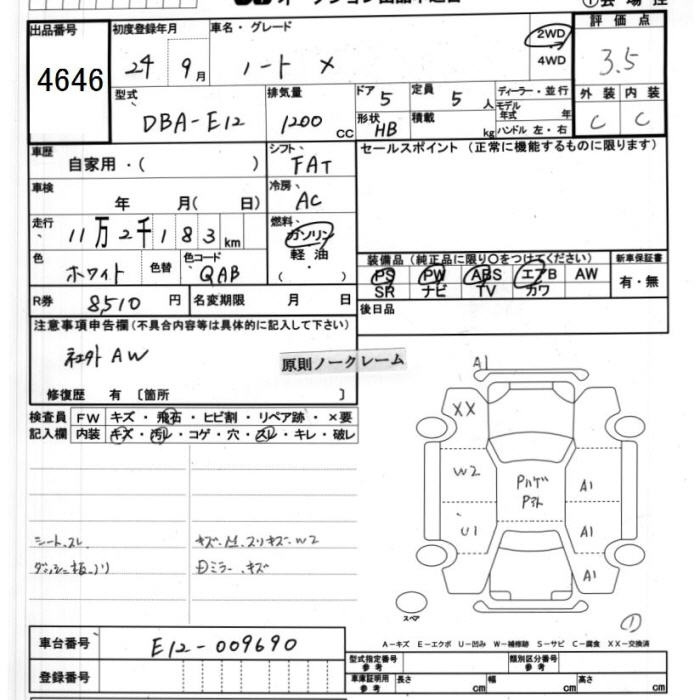 出品番号 初度登録年月 車名・グレード 2WD 評価点
4646 24年 9月 ノート X 4WD 3.5
型式 排気量 ドア 5 定員 5人 ディーラー・並行 外装 内装
DBA-E12 1200cc 形状 HB 積載 kg モデル年式 年 C C
ハンドル 左・右
車歴 自家用・( ) シフト FAT セールスポイント (正常に機能するものに限ります)
車検 年 月( 日) 冷房 AC
走行 11万2千183km 燃料 ガソリン
色 ホワイト 色替 色コード QAB 軽油 ・( )
装備品 (純正品に限り○をつけてください) 新車保証書
PS PW ABS エアB AW 有・無
SR ナビ TV カワ
R券 8,510円 名変期限 月 日 後日品
注意事項申告欄 (不具合内容等は具体的に記入して下さい)
社外AW
原則ノークレーム
修復歴 有 〔箇所 〕
検査員 FW キズ・飛石・ヒビ割・リペア跡・×要
記入欄 内装 キズ・汚レ・コゲ・穴・スレ・キレ・破レ
A1
XX
W2 Pハゲ A1
U1 A1
A1
シート、スレ キズ・凹、スリキズ、W2
ダッシュ板ノリ ミラーキズ
スペア ①
A-キズ E-エクボ U-凹み W-補修跡 S-サビ C-腐食 XX-交換済
車台番号 E12-009690
登録番号
型式指定番号 参考 類別区分番号 参考
車庫証明用 参考 長さ cm 幅 cm 高さ cm